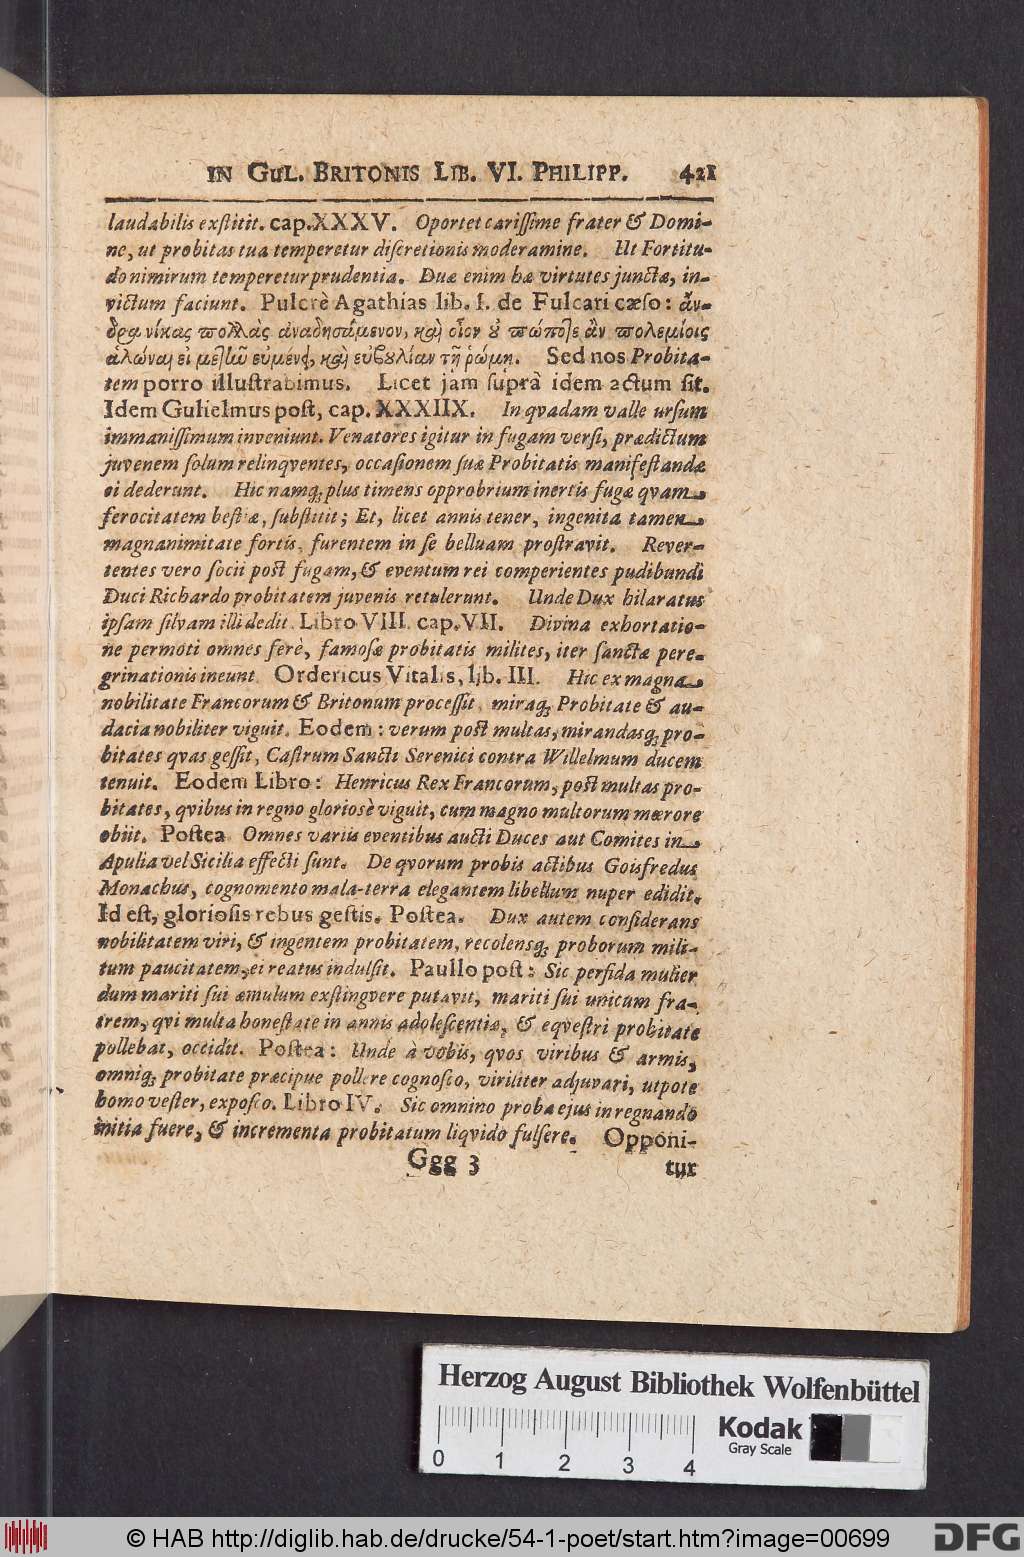 IN GUL. BRITONIS LIB. VI. PHILIPP. 421
laudabilis exſtitit. cap. XXXV. Oportet cariſſime frater & Domi-
ne, ut probitas tua temperetur diſcretionis moderamine. Ut Fortitu-
do nimirum temperetur prudentia. Duæ enim hæ virtutes junctæ, in-
victum faciunt. Pulcrè Agathias lib. I. de Fulcari cæſo: ἄν-
δρα νίκας πολλὰς ἀναδησάμενον, καὶ οἷον ὐ πώποτε ἂν πολεμίοις
ἁλῶναι εἰ μετῶ εὐμένς, καὶ εὐβουλίαν τῇ ῥώμῃ. Sed nos Probita-
tem porro illuſtrabimus. Licet jam ſuprà idem actum ſit.
Idem Gulielmus poſt, cap. XXXIIX. In qvadam valle urſum
immaniſſimum inveniunt. Venatores igitur in fugam verſi, prædictum
juvenem ſolum relinqventes, occaſionem ſuæ Probitatis manifeſtandæ
ei dederunt. Hic namq; plus timens opprobrium inertis fugæ qvam
ferocitatem beſtiæ, ſubſtitit; Et, licet annis tener, ingenita tamen
magnanimitate fortis, furentem in ſe belluam proſtravit. Rever-
tentes vero ſocii poſt fugam, & eventum rei comperientes pudibundi
Duci Richardo probitatem juvenis retulerunt. Unde Dux hilaratus
ipſam ſilvam illi dedit. Libro VIII. cap. VII. Divina exhortatio-
ne permoti omnes ferè, famoſæ probitatis milites, iter ſanctæ pere-
grinationis ineunt. Ordericus Vitalis, lib. III. Hic ex magna
nobilitate Francorum & Britonum proceſſit, miraq; Probitate & au-
dacia nobiliter viguit. Eodem: verum poſt multas, mirandasq; pro-
bitates qvas geſſit, Caſtrum Sancti Serenici contra Willelmum ducem
tenuit. Eodem Libro: Henricus Rex Francorum, poſt multas pro-
bitates, qvibus in regno glorioſè viguit, cum magno multorum mœrore
obiit. Poſtea Omnes variis eventibus aucti Duces aut Comites in
Apulia vel Sicilia effecti ſunt. De qvorum probis actibus Goisfredus
Monachus, cognomento mala-terra elegantem libellum nuper edidit.
Id eſt, glorioſis rebus geſtis. Poſtea. Dux autem conſiderans
nobilitatem viri, & ingentem probitatem, recolensq; proborum mili-
tum paucitatem, ei reatus indulſit. Paullo poſt: Sic perfida mulier
dum mariti ſui æmulum exſtingvere putavit, mariti ſui unicum fra-
trem, qvi multa honeſtate in annis adoleſcentiæ, & eqveſtri probitate
pollebat, occidit. Poſtea: Unde à vobis, qvos viribus & armis,
omniq; probitate præcipue pollere cognoſco, viriliter adjuvari, utpote
homo veſter, expoſco. Libro IV. Sic omnino proba ejus in regnando
initia fuere, & incrementa probitatum liqvido fulſere. Opponi-
Ggg 3 tur
Herzog August Bibliothek Wolfenbüttel
Kodak
Gray Scale
0 1 2 3 4
© HAB http://diglib.hab.de/drucke/54-1-poet/start.htm?image=00699 DFG